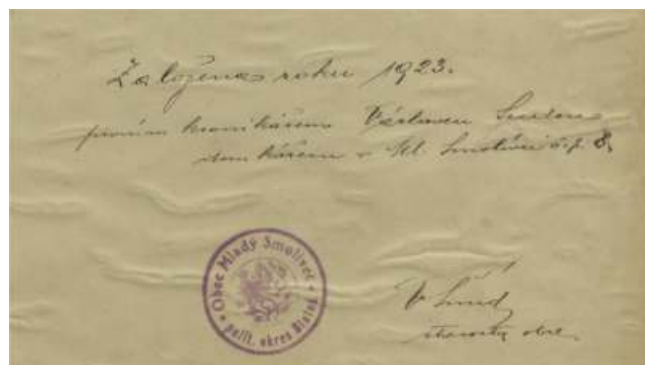 Založena roku 1923.
prvním kronikářem Václavem
domkářem v Ml. Smolivci č. p. 8.
Obec Mladý Smolivec
polit. okres Blatná
starosta obce